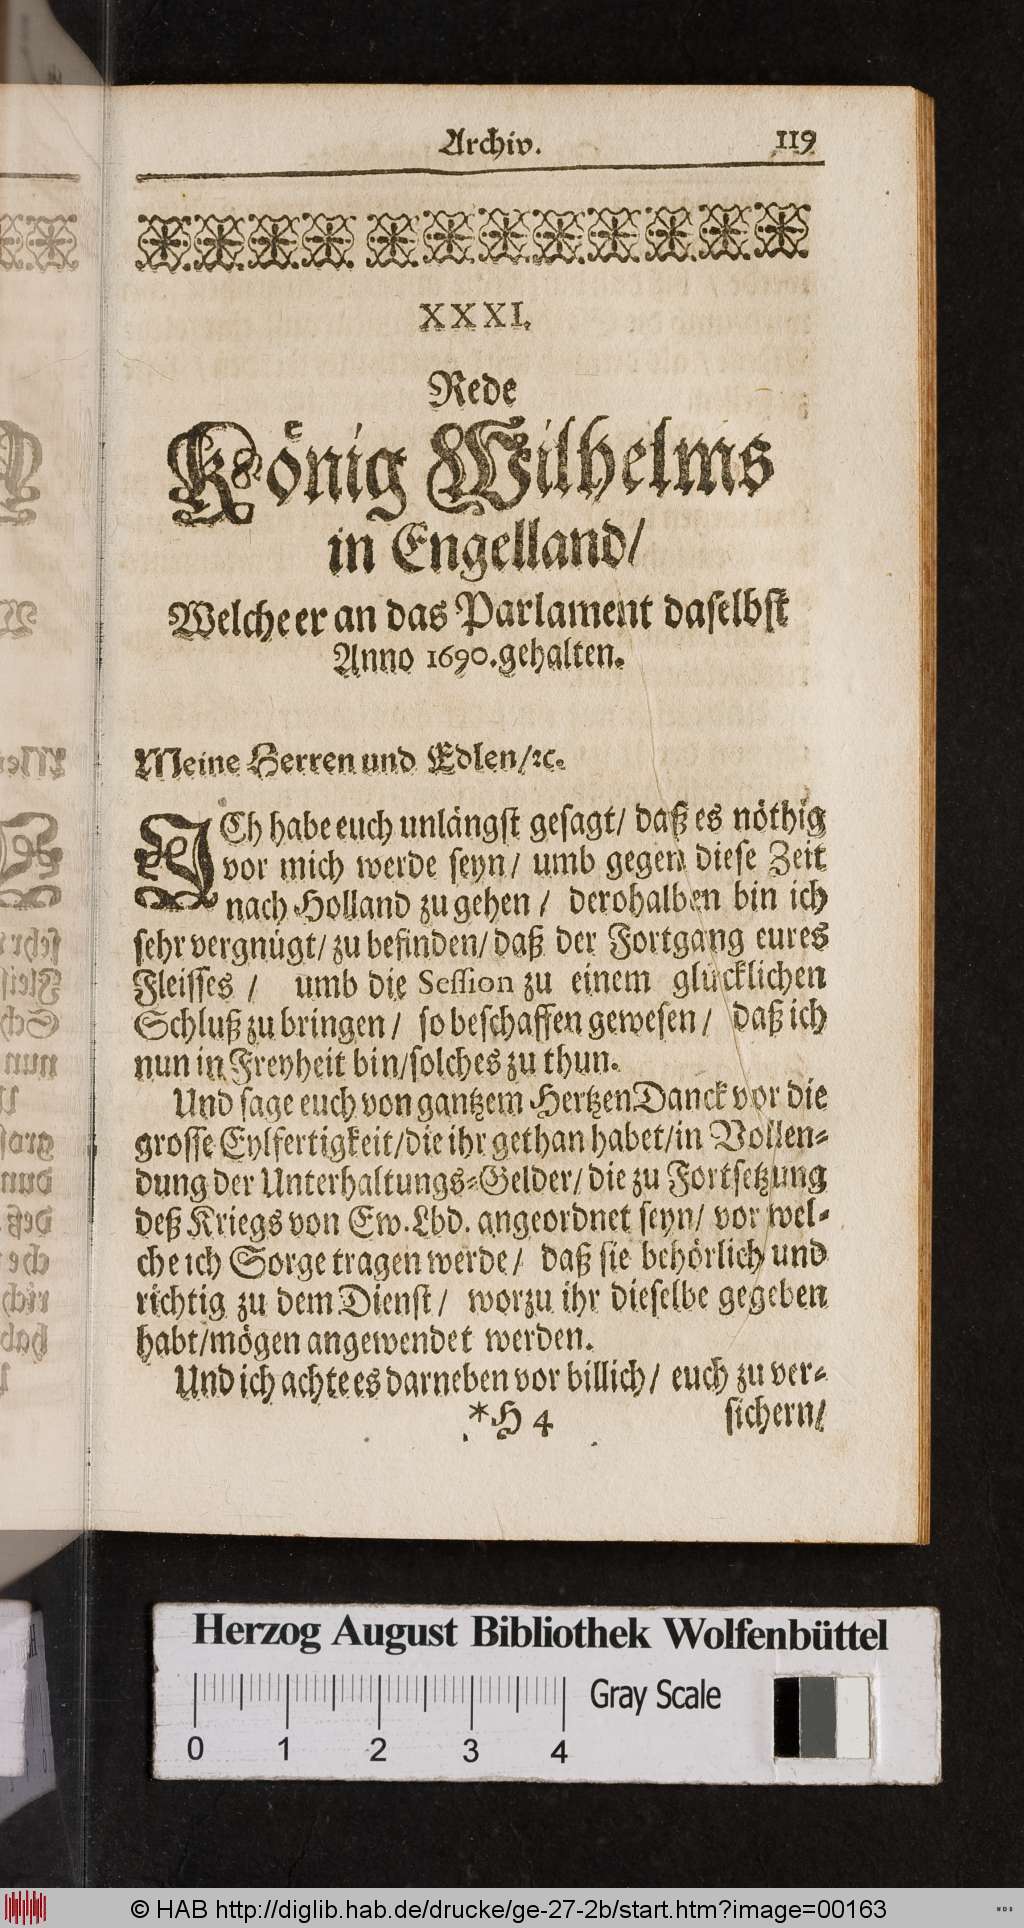 Archiv. 119
XXXI.
Rede
König Wilhelms
in Engelland/
Welche er an das Parlament daselbst
Anno 1690. gehalten.
Meine Herren und Edlen/ ꝛc.
ICh habe euch unlängst gesagt/ daß es nöthig
vor mich werde seyn/ umb gegen diese Zeit
nach Holland zu gehen/ derohalben bin ich
sehr vergnügt/ zu befinden/ daß der Fortgang eures
Fleisses/ umb die Session zu einem glücklichen
Schluß zu bringen/ so beschaffen gewesen/ daß ich
nun in Freyheit bin/ solches zu thun.
Und sage euch von gantzem Hertzen Danck vor die
grosse Eylfertigkeit/ die ihr gethan habet/ in Vollen-
dung der Unterhaltungs-Gelder/ die zu Fortsetzung
deß Kriegs von Ew. Lbd. angeordnet seyn/ vor wel-
che ich Sorge tragen werde/ daß sie behörlich und
richtig zu dem Dienst/ worzu ihr dieselbe gegeben
habt/ mögen angewendet werden.
Und ich achte es darneben vor billich/ euch zu ver-
*H 4 sichern/
Herzog August Bibliothek Wolfenbüttel
Gray Scale
0 1 2 3 4
© HAB http://diglib.hab.de/drucke/ge-27-2b/start.htm?image=00163